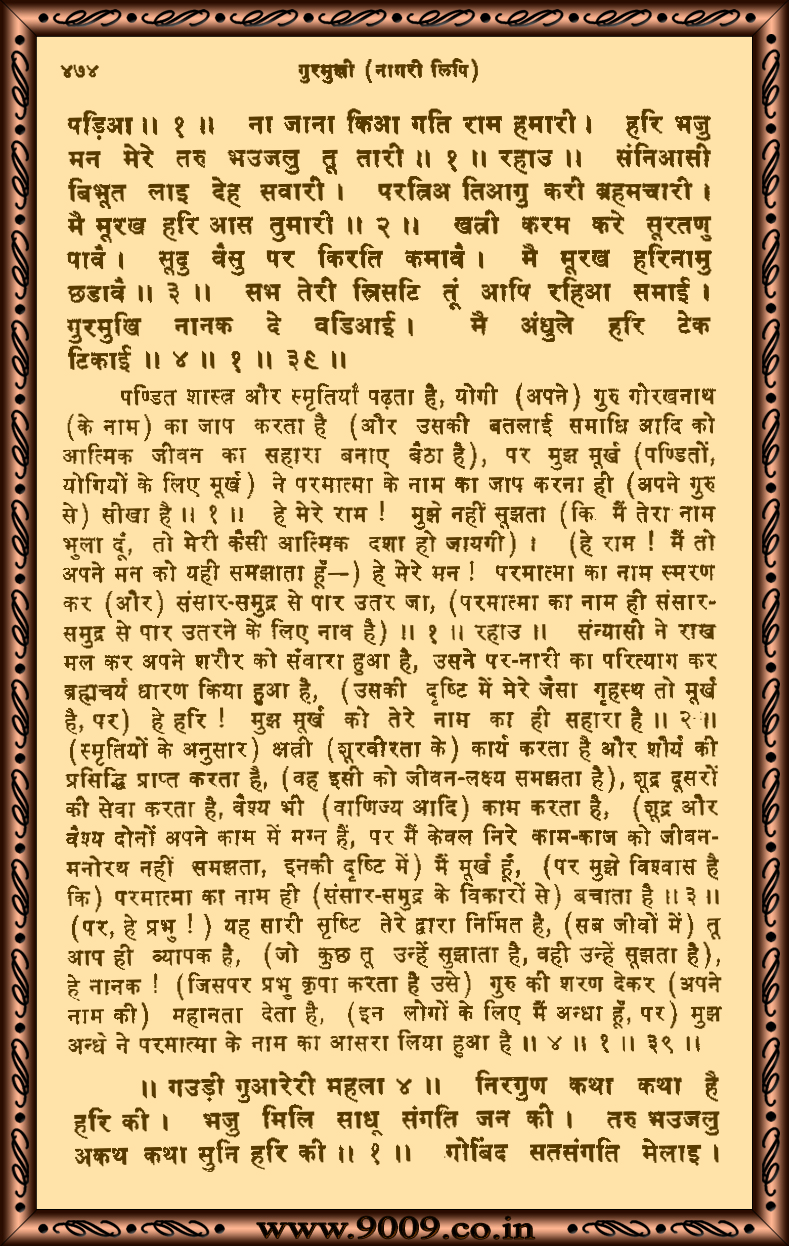 ४७४ गुरमुखी (नागरी लिपि)
पड़िआ ।। १ ।। ना जाना किआ गति राम हमारी । हरि भजु
मन मेरे तरु भउजलु तू तारी ।। १ ।। रहाउ ।। संनिआसी
बिभूत लाइ देह सवारी । परत्रिअ तिआगु करी ब्रहमचारी ।
मै मूरख हरि आस तुमारी ।। २ ।। खत्री करम करे सूरतणु
पावै । सूदु वैसु पर किरति कमावै । मै मूरख हरिनामु
छडावै ।। ३ ।। सभ तेरी स्रिसटि तूं आपि रहिआ समाई ।
गुरमुखि नानक दे वडिआई । मै अंधुले हरि टेक
टिकाई ।। ४ ।। १ ।। ३९ ।।
पण्डित शास्त्र और स्मृतियाँ पढ़ता है, योगी (अपने) गुरु गोरखनाथ
(के नाम) का जाप करता है (और उसकी बतलाई समाधि आदि को
आत्मिक जीवन का सहारा बनाए बैठा है), पर मुझ मूर्ख (पण्डितों,
योगियों के लिए मूर्ख) ने परमात्मा के नाम का जाप करना ही (अपने गुरु
से) सीखा है ।। १ ।। हे मेरे राम ! मुझे नहीं सूझता (कि मैं तेरा नाम
भुला दूँ, तो मेरी कैसी आत्मिक दशा हो जायगी) । (हे राम ! मैं तो
अपने मन को यही समझाता हूँ—) हे मेरे मन ! परमात्मा का नाम स्मरण
कर (और) संसार-समुद्र से पार उतर जा, (परमात्मा का नाम ही संसार-
समुद्र से पार उतरने के लिए नाव है) ।। १ ।। रहाउ ।। संन्यासी ने राख
मल कर अपने शरीर को सँवारा हुआ है, उसने पर-नारी का परित्याग कर
ब्रह्मचर्य धारण किया हुआ है, (उसकी दृष्टि में मेरे जैसा गृहस्थ तो मूर्ख
है, पर) हे हरि ! मुझ मूर्ख को तेरे नाम का ही सहारा है ।। २ ।।
(स्मृतियों के अनुसार) क्षत्री (शूरवीरता के) कार्य करता है और शौर्य की
प्रसिद्धि प्राप्त करता है, (वह इसी को जीवन-लक्ष्य समझता है), शूद्र दूसरों
की सेवा करता है, वैश्य भी (वाणिज्य आदि) काम करता है, (शूद्र और
वैश्य दोनों अपने काम में मग्न हैं, पर मैं केवल निरे काम-काज को जीवन-
मनोरथ नहीं समझता, इनकी दृष्टि में) मैं मूर्ख हूँ, (पर मुझे विश्वास है
कि) परमात्मा का नाम ही (संसार-समुद्र के विकारों से) बचाता है ।। ३ ।।
(पर, हे प्रभु ! ) यह सारी सृष्टि तेरे द्वारा निर्मित है, (सब जीवों में) तू
आप ही व्यापक है, (जो कुछ तू उन्हें सुझाता है, वही उन्हें सूझता है),
हे नानक ! (जिसपर प्रभु कृपा करता है उसे) गुरु की शरण देकर (अपने
नाम की) महानता देता है, (इन लोगों के लिए मैं अन्धा हूँ, पर) मुझ
अन्धे ने परमात्मा के नाम का आसरा लिया हुआ है ।। ४ ।। १ ।। ३९ ।।
।। गउड़ी गुआरेरी महला ४ ।। निरगुण कथा कथा है
हरि की । भजु मिलि साधू संगति जन की । तरु भउजलु
अकथ कथा सुनि हरि की ।। १ ।। गोबिंद सतसंगति मेलाइ ।
www.9009.co.in